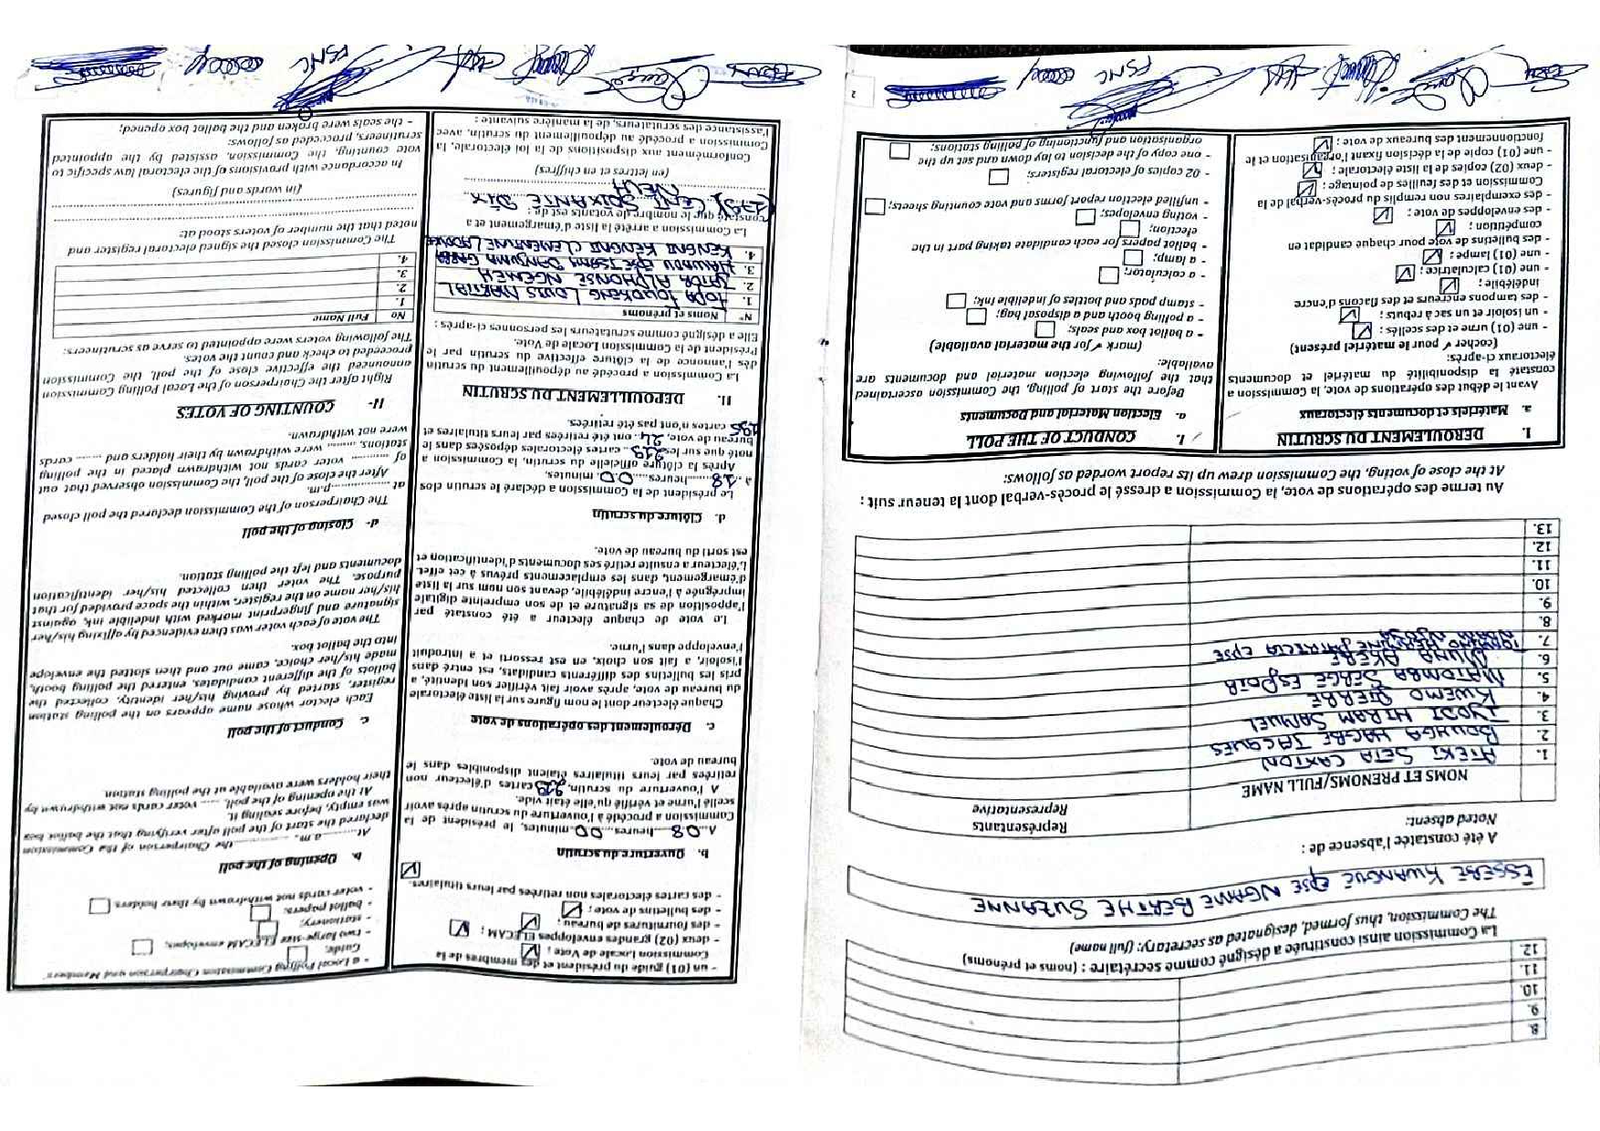 8.
9.
10.
11.
12.
La Commission ainsi constituée a désigné comme secrétaire : (noms et prénoms)
The Commission, thus formed, designated as secretary: (full name)
ESSEBE KWANGUE EPSE NGAME BERTHE SUZANNE
A été constatée l'absence de :
Noted absent:
NOMS ET PRENOMS/FULL NAME
Représentants
Representative
1. ATEKI SETA CAXTON
2. BOUHGA HAGBE JACQUES
3. IYODI HIRAM SAMUEL
4. KWEMO PIERRE
5. MATOMBA SERGE ESPOIR
6. MUNA AKERE
7. TOMAINO HERMINE PATRICIA EPSE
8.
9.
10.
11.
12.
13.
Au terme des opérations de vote, la Commission a dressé le procès-verbal dont la teneur suit :
At the close of voting, the Commission drew up its report worded as follows:
I. DEROULEMENT DU SCRUTIN
a. Matériels et documents électoraux
Avant le début des opérations de vote, la Commission a
constaté la disponibilité du matériel et documents
électoraux ci-après:
(cocher ✓ pour le matériel présent)
- une (01) urne et des scellés :
- un isoloir et un sac à rebuts :
- des tampons encreurs et des flacons d'encre
indélébile :
- une (01) calculatrice :
- une (01) lampe :
- des bulletins de vote pour chaque candidat en
compétition :
- des enveloppes de vote :
- des exemplaires non remplis du procès-verbal de la
Commission et des feuilles de pointage :
- deux (02) copies de la liste électorale :
- une (01) copie de la décision fixant l'organisation et le
fonctionnement des bureaux de vote :
I. CONDUCT OF THE POLL
a. Election Material and Documents
Before the start of polling, the Commission ascertained
that the following election material and documents are
available:
(mark ✓ for the material available)
- a ballot box and seals;
- a polling booth and a disposal bag;
- stamp pads and bottles of indelible ink;
- a calculator;
- a lamp;
- ballot papers for each candidate taking part the
election;
- voting envelopes;
- unfilled election report forms and vote counting sheets;
- 02 copies of electoral registers;
- one copy of the decision to lay down and set up the
organisation and functioning of polling stations;
2
FSNC
- un (01) guide du président et des membres de la
Commission Locale de Vote ;
- deux (02) grandes enveloppes ELECAM ;
- des fournitures de bureau ;
- des bulletins de vote ;
- des cartes électorales non retirées par leurs titulaires.
b. Ouverture du scrutin
A 08 heures 00 minutes, le président de la
Commission a procédé à l'ouverture du scrutin après avoir
scellé l'urne et vérifié qu'elle était vide.
A l'ouverture du scrutin, 219 cartes d'électeur non
retirées par leurs titulaires étaient disponibles dans le
bureau de vote.
c. Déroulement des opérations de vote
Chaque électeur dont le nom figure sur la liste électorale
du bureau de vote, après avoir fait vérifier son identité, a
pris les bulletins des différents candidats, est entré dans
l'isoloir, a fait son choix, en est ressorti et a introduit
l'enveloppe dans l'urne.
Le vote de chaque électeur a été constaté par
l'apposition de sa signature et de son empreinte digitale
imprégnée à l'encre indélébile, devant son nom sur la liste
d'émargement, dans les emplacements prévus à cet effet.
L'électeur a ensuite retiré ses documents d'identification et
est sorti du bureau de vote.
d. Clôture du scrutin
Le président de la Commission a déclaré le scrutin clos
à 18 heures 00 minutes.
Après la clôture officielle du scrutin, la Commission a
noté que sur les 219 cartes électorales déposées dans le
bureau de vote, 24 ont été retirées par leurs titulaires et
195 cartes n'ont pas été retirées.
II. DEPOUILLEMENT DU SCRUTIN
La Commission a procédé au dépouillement du scrutin
dès l'annonce de la clôture effective du scrutin par le
Président de la Commission Locale de Vote.
Elle a désigné comme scrutateurs les personnes ci-après :
N° Noms et prénoms
1. TOPA FOUOKENG LOUIS MARTIAL
2. TATOR ALPHONSE NGEMEH
3. EPSE TSAMO DANJUMA
4. KENGNI KENGNI CLEMENTINE LADOUCE
La Commission a arrêté la liste d'émargement et a
constaté que le nombre de votants est de :
(179) CENT SOIXANTE DIX
NEUF
(en lettres et en chiffres)
Conformément aux dispositions de la loi électorale, la
Commission a procédé au dépouillement du scrutin, avec
l'assistance des scrutateurs, de la manière suivante :
- a Local Polling Commission Chairperson and Members'
Guide;
- two large-size ELECAM envelopes;
- stationery;
- ballot papers;
- voter cards not withdrawn by their holders.
b. Opening of the poll
At............a.m, ............the Chairperson of the Commission
declared the start of the poll after verifying that the ballot box
was empty, before sealing it.
At the opening of the poll, ...... voter cards not withdrawn by
their holders were available at the polling station.
c. Conduct of the poll
Each elector whose name appears on the polling station
register, started by proving his/her identity, collected the
ballots of the different candidates, entered the polling booth,
made his/her choice, came out and then slotted the envelope
into the ballot box.
The vote of each voter was then evidenced by affixing his/her
signature and fingerprint marked with indelible ink, against
his/her name on the register, within the space provided for that
purpose. The voter then collected his/her identification
documents and left the polling station.
d- Closing of the poll
The Chairperson of the Commission declared the poll closed
at ...............p.m.
After the close of the poll, the Commission observed that out
of ......... voter cards not withdrawn placed in the polling
stations, ......... were withdrawn by their holders and ........ cards
were not withdrawn.
II- COUNTING OF VOTES
Right after the Chairperson of the Local Polling Commission
announced the effective close of the poll, the Commission
proceeded to check and count the votes.
The following voters were appointed to serve as scrutineers:
No Full Name
1.
2.
3.
4.
The Commission closed the signed electoral register and
noted that the number of voters stood at:
(in words and figures)
In accordance with provisions of the electoral law specific to
vote counting, the Commission, assisted by the appointed
scrutineers, proceeded as follows:
- the seals were broken and the ballot box opened;
FSNC